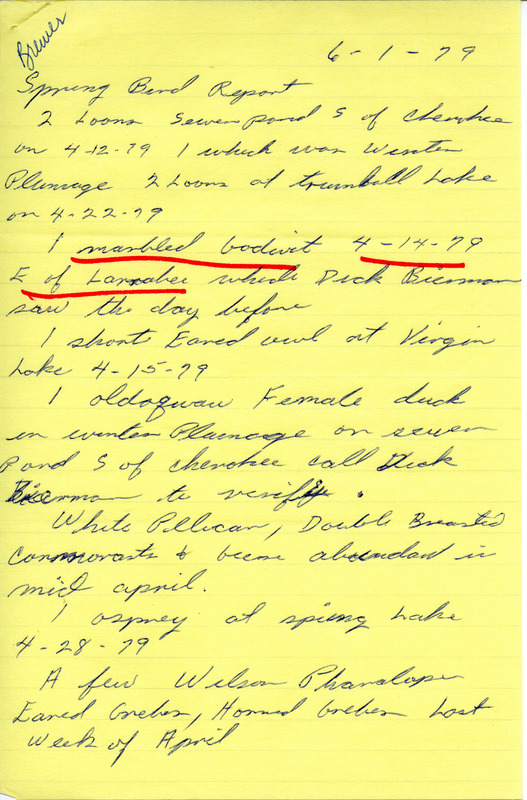 Brewer
6-1-79
Spring Bird Report
2 Loons Sewer pond S of Cherokee
on 4-12-79 1 which was Winter
Plumage 2 Loons at trumbull Lake
on 4-22-79
1 marbled Godwit 4-14-79
E of Larrabee which Dick Bierman
saw the day before
1 short Eared owl at Virgin
Lake 4-15-79
1 oldsquaw Female duck
in winter Plumage on sewer
Pond S of Cherokee call Dick
Bierman to verify.
White Pellican, Double Breasted
Cormorants & were abundant in
mid april.
1 osprey at spring Lake
4-28-79
A few Wilson Phanalope
Eared Grebes, Horned Grebes Last
Week of April